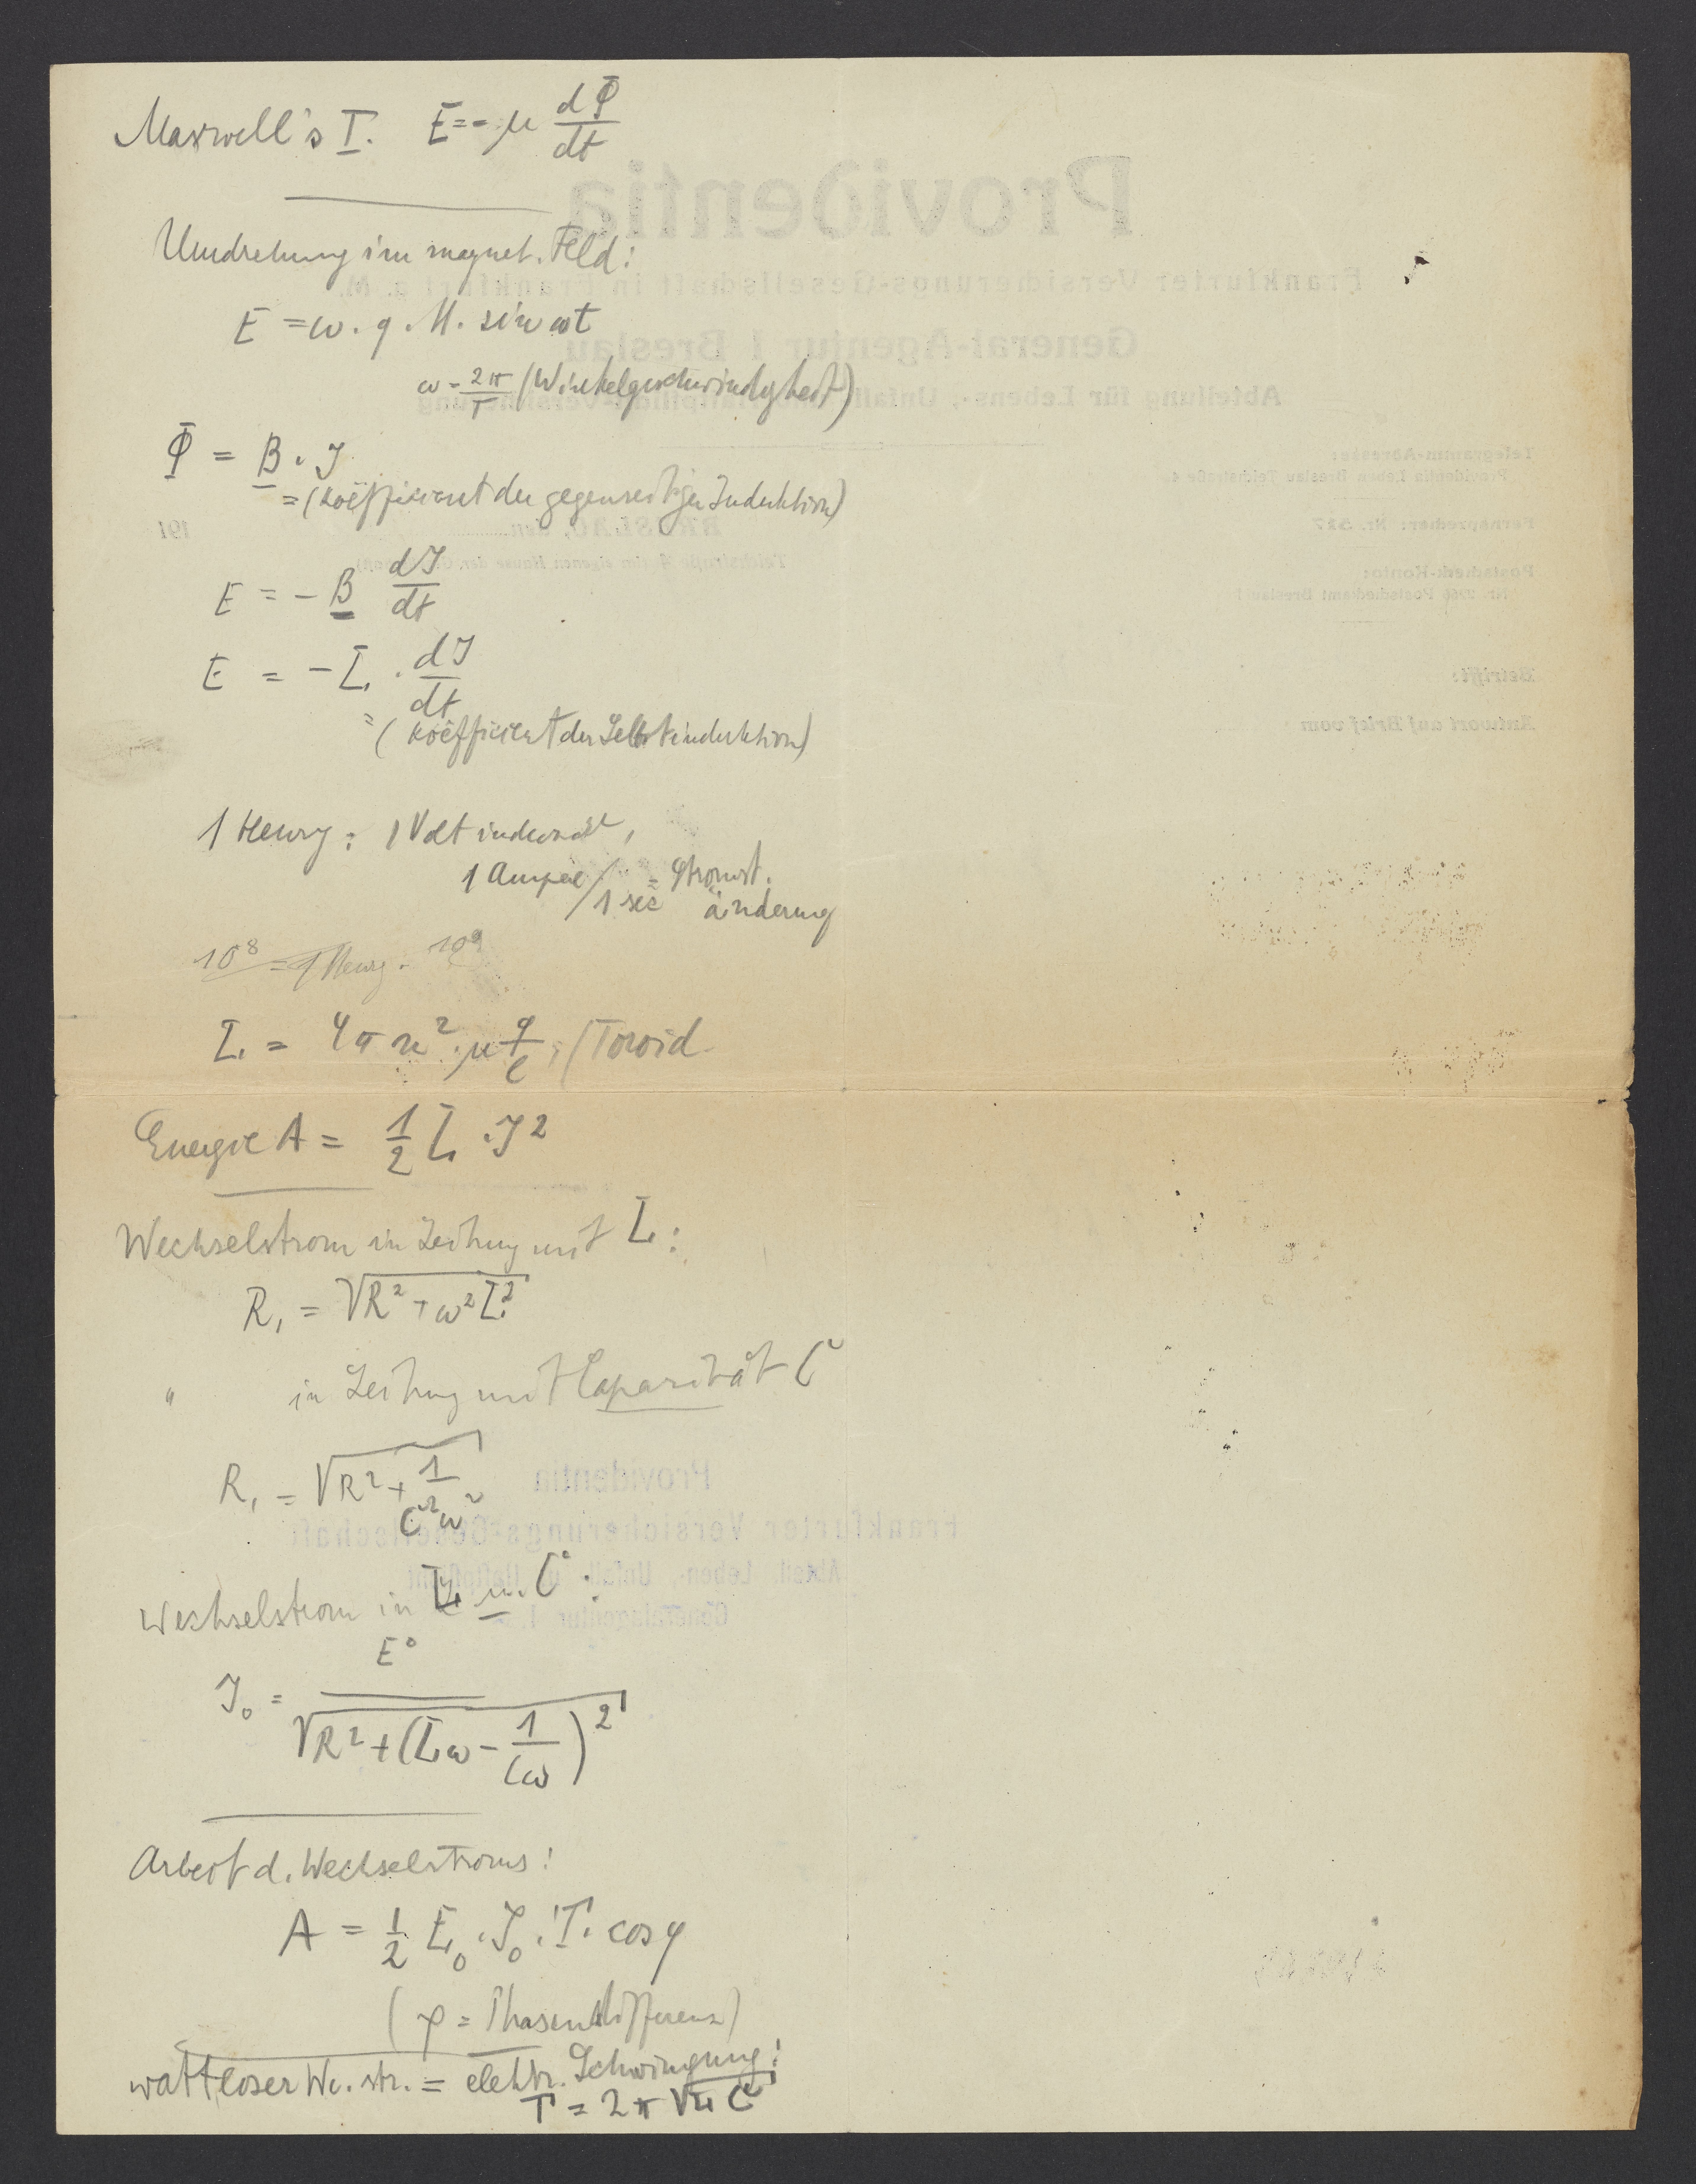 Maxwell's I. E = - μ dΦ/dt
Umdrehung im magnet. Feld:
E = ω . q . M . sin ωt
ω = 2π/T (Winkelgeschwindigkeit)
Φ = B . J
= (Koëffizient der gegenseitigen Induktion)
E = - B dJ/dt
E = - L . dJ/dt
= (Koëffizient der Selbstinduktion)
1 Henry : 1 Volt induziert,
1 Ampere/1 sec = Stromst.
änderung
10⁸ = 1 Henry . 10⁹
L = 4π n² . μ q/l ; (Toroid
Energie A = 1/2 L . J²
Wechselstrom in Leitung mit L :
R₁ = √(R² + ω² L²)
" in Leitung mit Caparität C
R₁ = √(R² + 1/(C² ω²))
Wechselstrom in L u. C :
J₀ = E⁰/√(R² + (Lω - 1/(Cω))²)
Arbeit d. Wechselstroms :
A = 1/2 E₀ . J₀ . T . cos φ
( φ = Phasendifferenz)
wattloser We. str. = elektr. Schwingung :
T = 2π √(L C)
Providentia
Frankfurter Versicherungs-Gesellschaft in Frankfurt a. M.
General-Agentur I Breslau
Abteilung für Lebens-, Unfall- Haftpflicht-Versicherung
Telegramm-Adresse:
Providentia Leben Breslau Teichstraße 4.
Fernsprecher: Nr. 527
BRESLAU, den 191
Postscheck-Konto:
Postscheckamt Breslau
Betrifft:
Antwort auf Brief vom
Providentia
Frankfurter Versicherungs-Gesellschaft
Abteil. Leben-, Unfall- u. Haftpflicht
Generalagentur I.